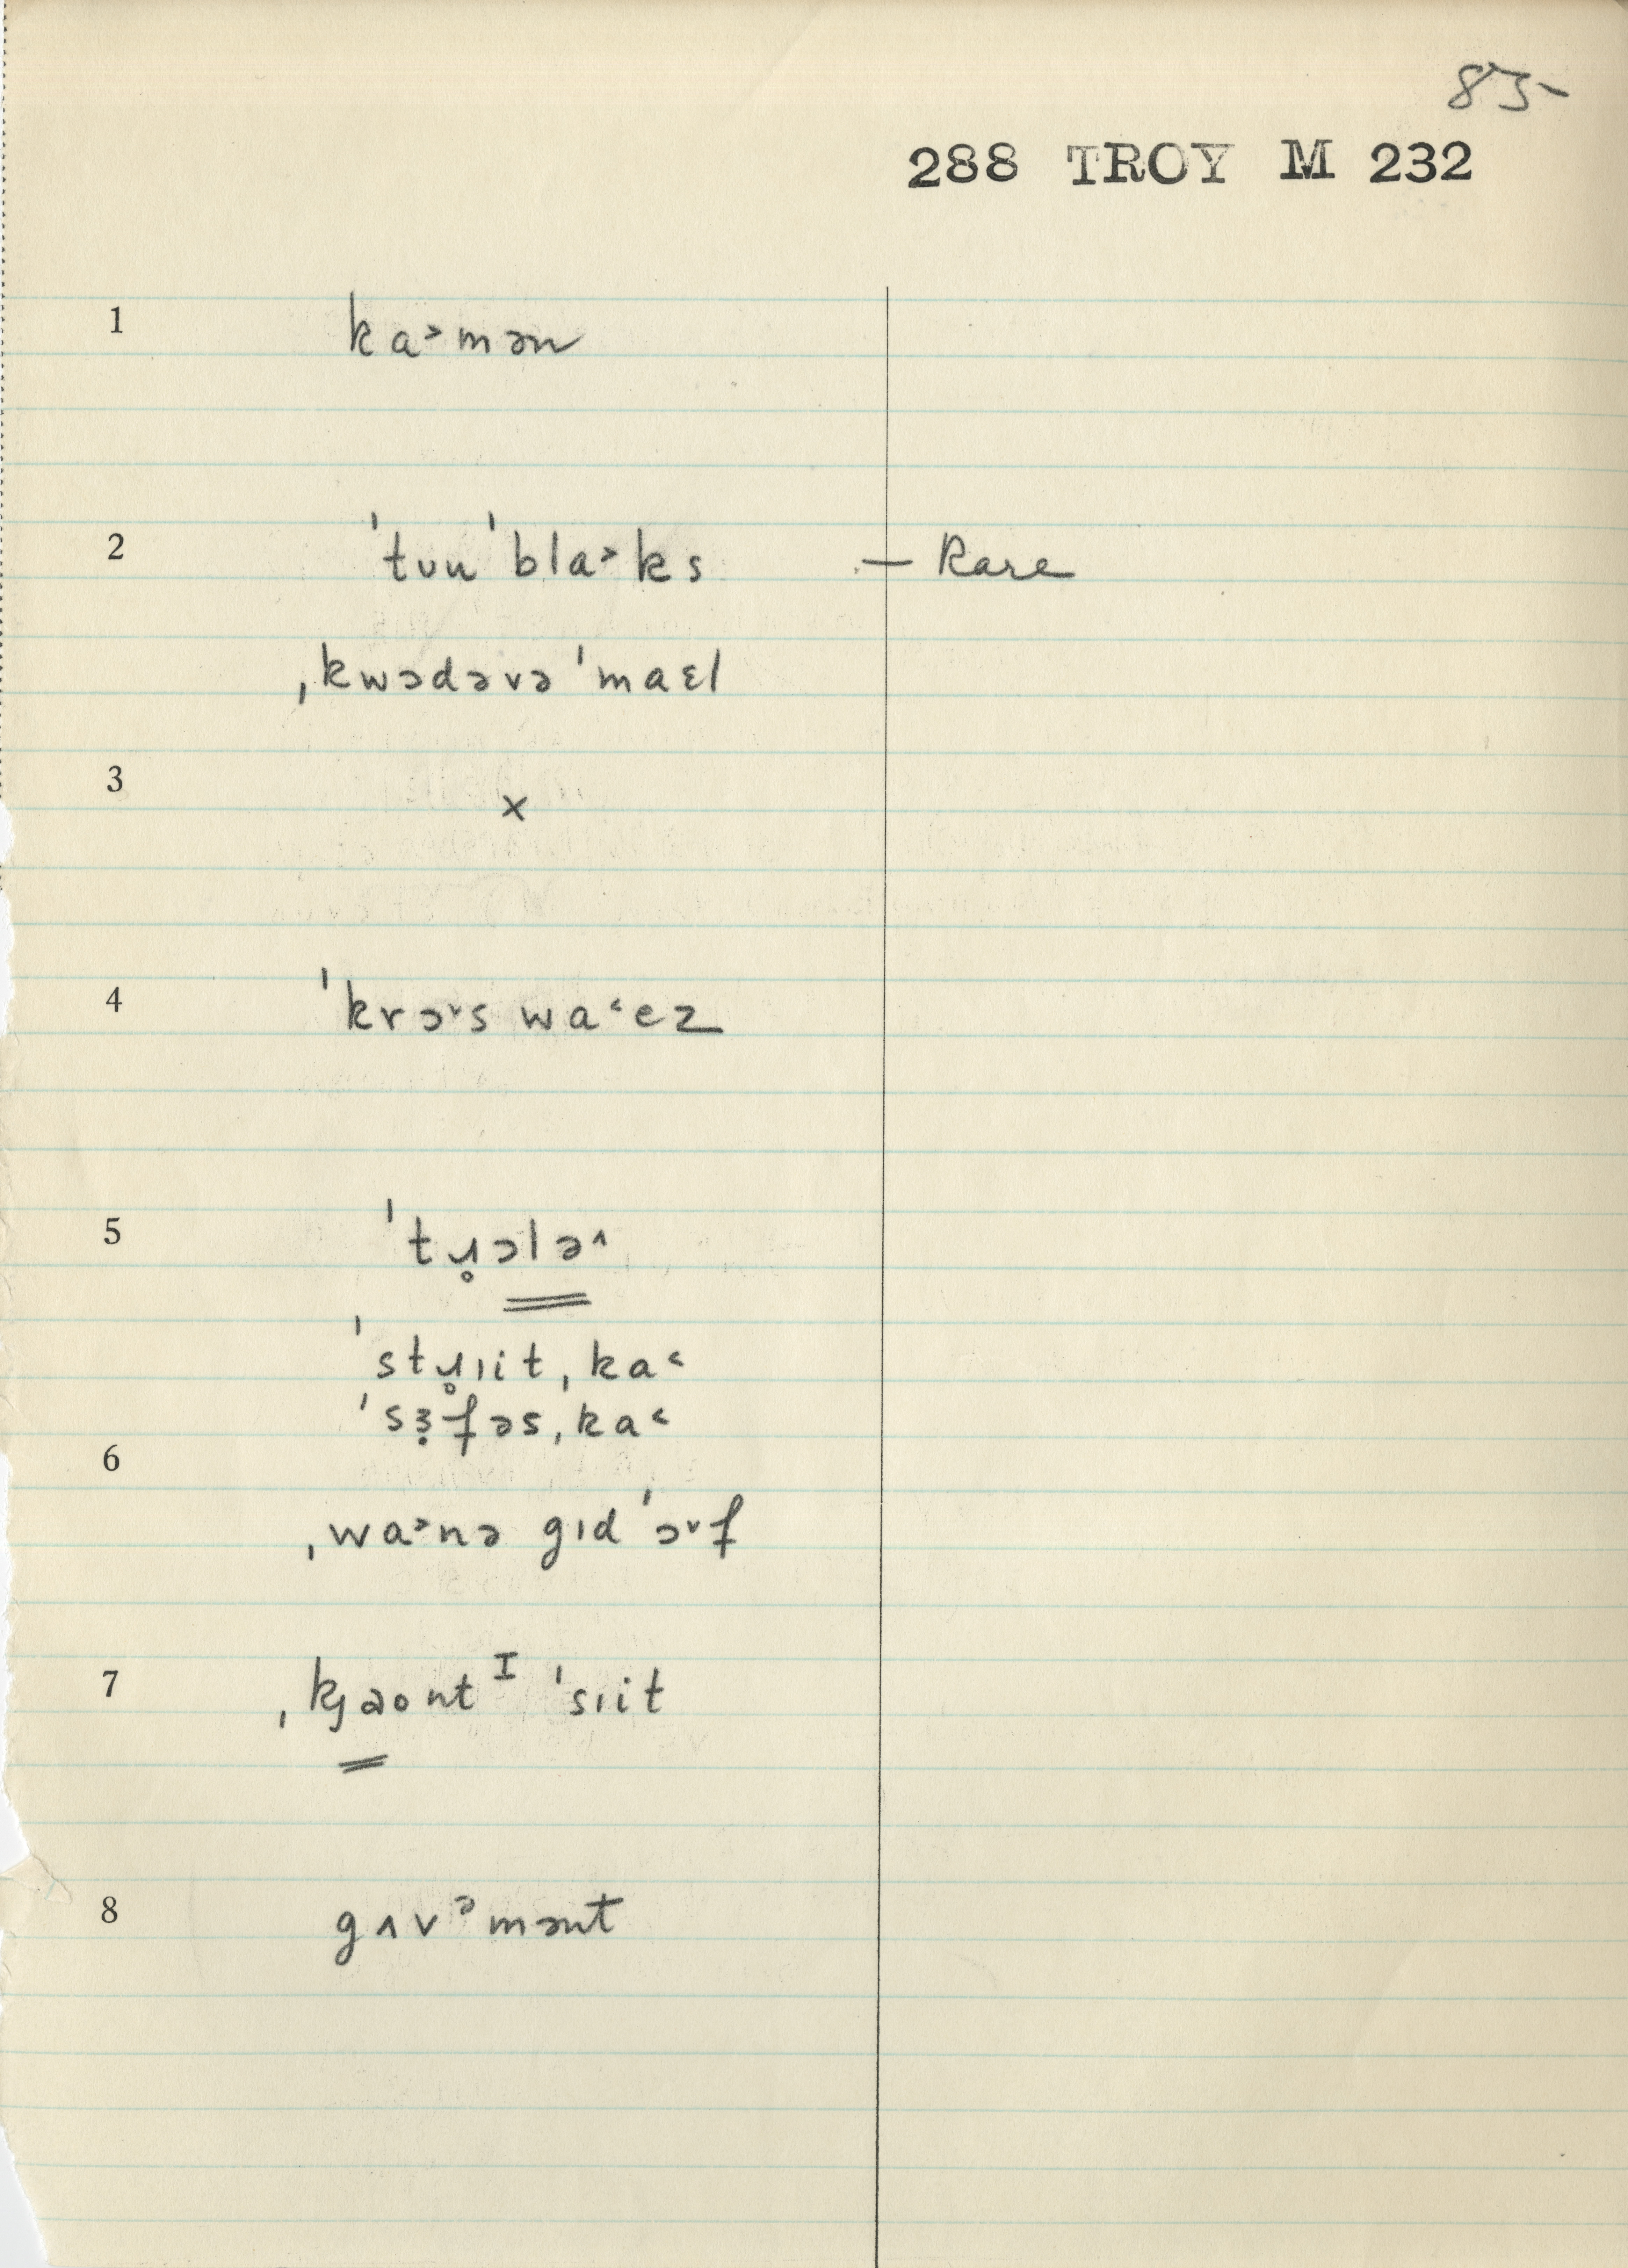 85-
288 TROY M 232
1 ka˃mən
2 ˈtuu ˈbla˃ks — Rare
ˌkwɔdəvə ˈmaɛl
3 ×
4 ˈkrɔ˅s wa˂ez
5 ˈtɹ̥ɔlə˄
ˈstɹ̥ɪitˌka˂
ˈsɜ̣fəsˌka˂
6
ˌwa˃nə gɪd ˈɔ˅f
7 ˌkj̥əontᴵ ˈsɪit
8 gʌvᵊmənt